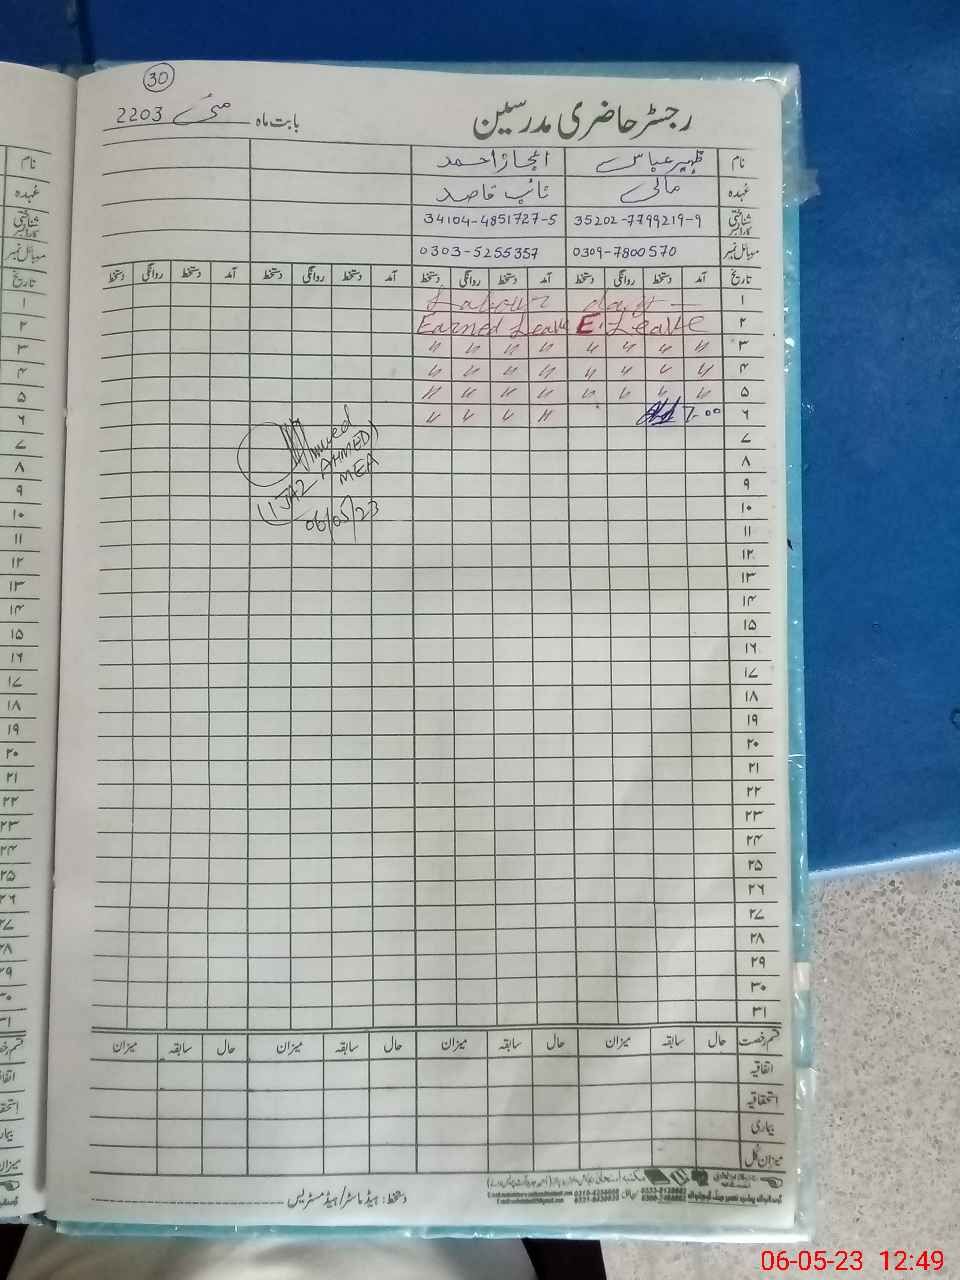 30
رجسٹر حاضری مدرسین
بابت ماہ مئی 2203
نام ظہیر عباس اعجاز احمد
عہدہ مالی نائب قاصد
شناختی کارڈ نمبر 35202-7799219-9 34104-4851727-5
موبائل نمبر 0309-7800570 0303-5255357
تاریخ آمد دستخط روانگی دستخط آمد روانگی دستخط آمد دستخط روانگی دستخط آمد دستخط روانگی دستخط
۱ Labour day
۲ Earned Leave E. Leave
۳ " " " " " " " "
۴ " " " " " " " "
۵ " " " " " " " "
۶ " " " " 7-00
۷
۸
۹
۱۰
۱۱
۱۲
۱۳
۱۴
۱۵
۱۶
۱۷
۱۸
۱۹
۲۰
۲۱
۲۲
۲۳
۲۴
۲۵
۲۶
۲۷
۲۸
۲۹
۳۰
۳۱
(IJAZ AHMED)
MEA
06/05/23
قسم رخصت حال سابقہ میزان حال سابقہ میزان حال سابقہ میزان حال سابقہ میزان
اتفاقیہ
استحقاقیہ
بیماری
میزان کل
دستخط: ہیڈ ماسٹر/ہیڈ مسٹریس
نام
عہدہ
شناختی کارڈ نمبر
موبائل نمبر
تاریخ
۱
۲
۳
۴
۵
۶
۷
۸
۹
۱۰
۱۱
۱۲
۱۳
۱۴
۱۵
۱۶
۱۷
۱۸
۱۹
۲۰
۲۱
۲۲
۲۳
۲۴
۲۵
۲۶
۲۷
۲۸
۲۹
۳۰
۳۱
06-05-23 12:49